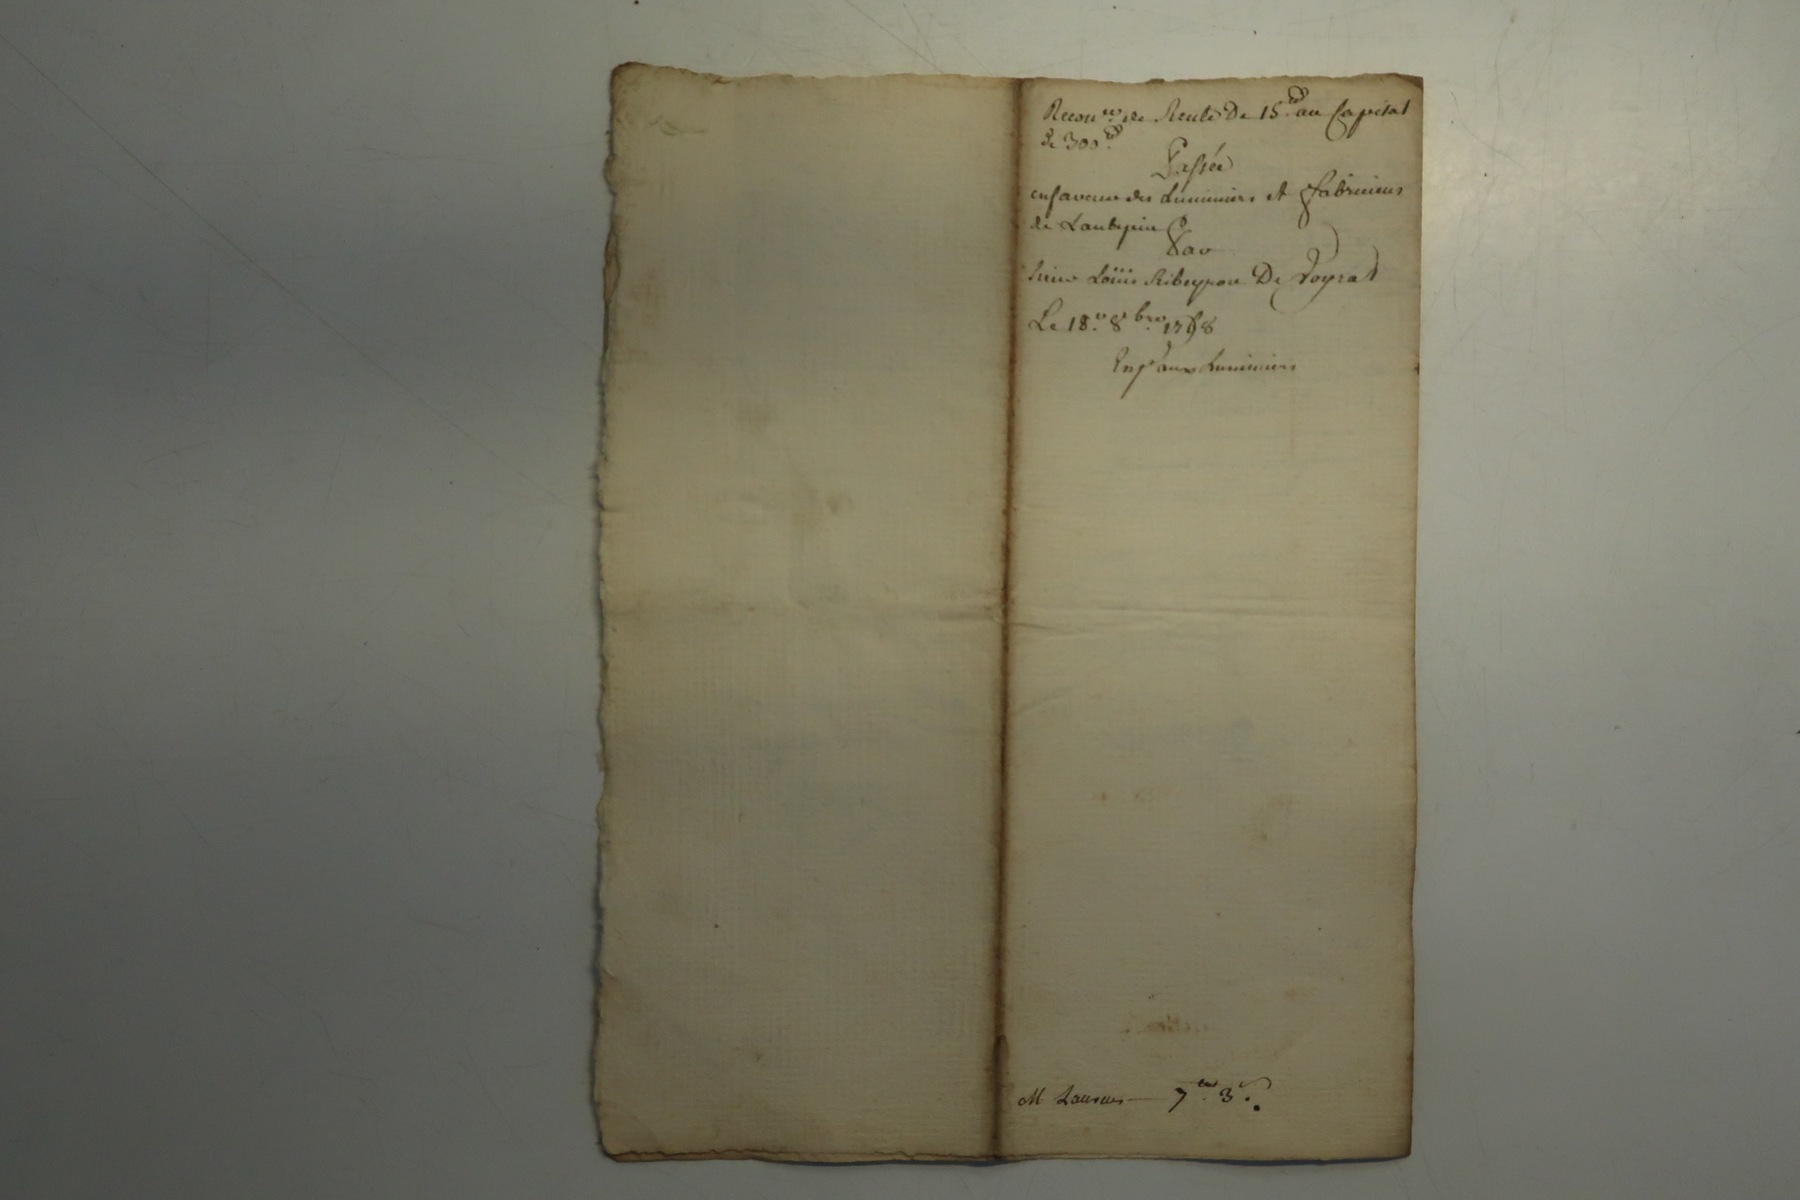 Recon.ce de Rente De 15.lt au Capital
de 300.lt
Passée
en faveur des Luminiers et fabriciens
de Laubepin
Par
Sieur Loüis Ribeyron De
Le 18.e 8.bre 1768
Exp.on aux Luminiers
M 7.lt 3.s